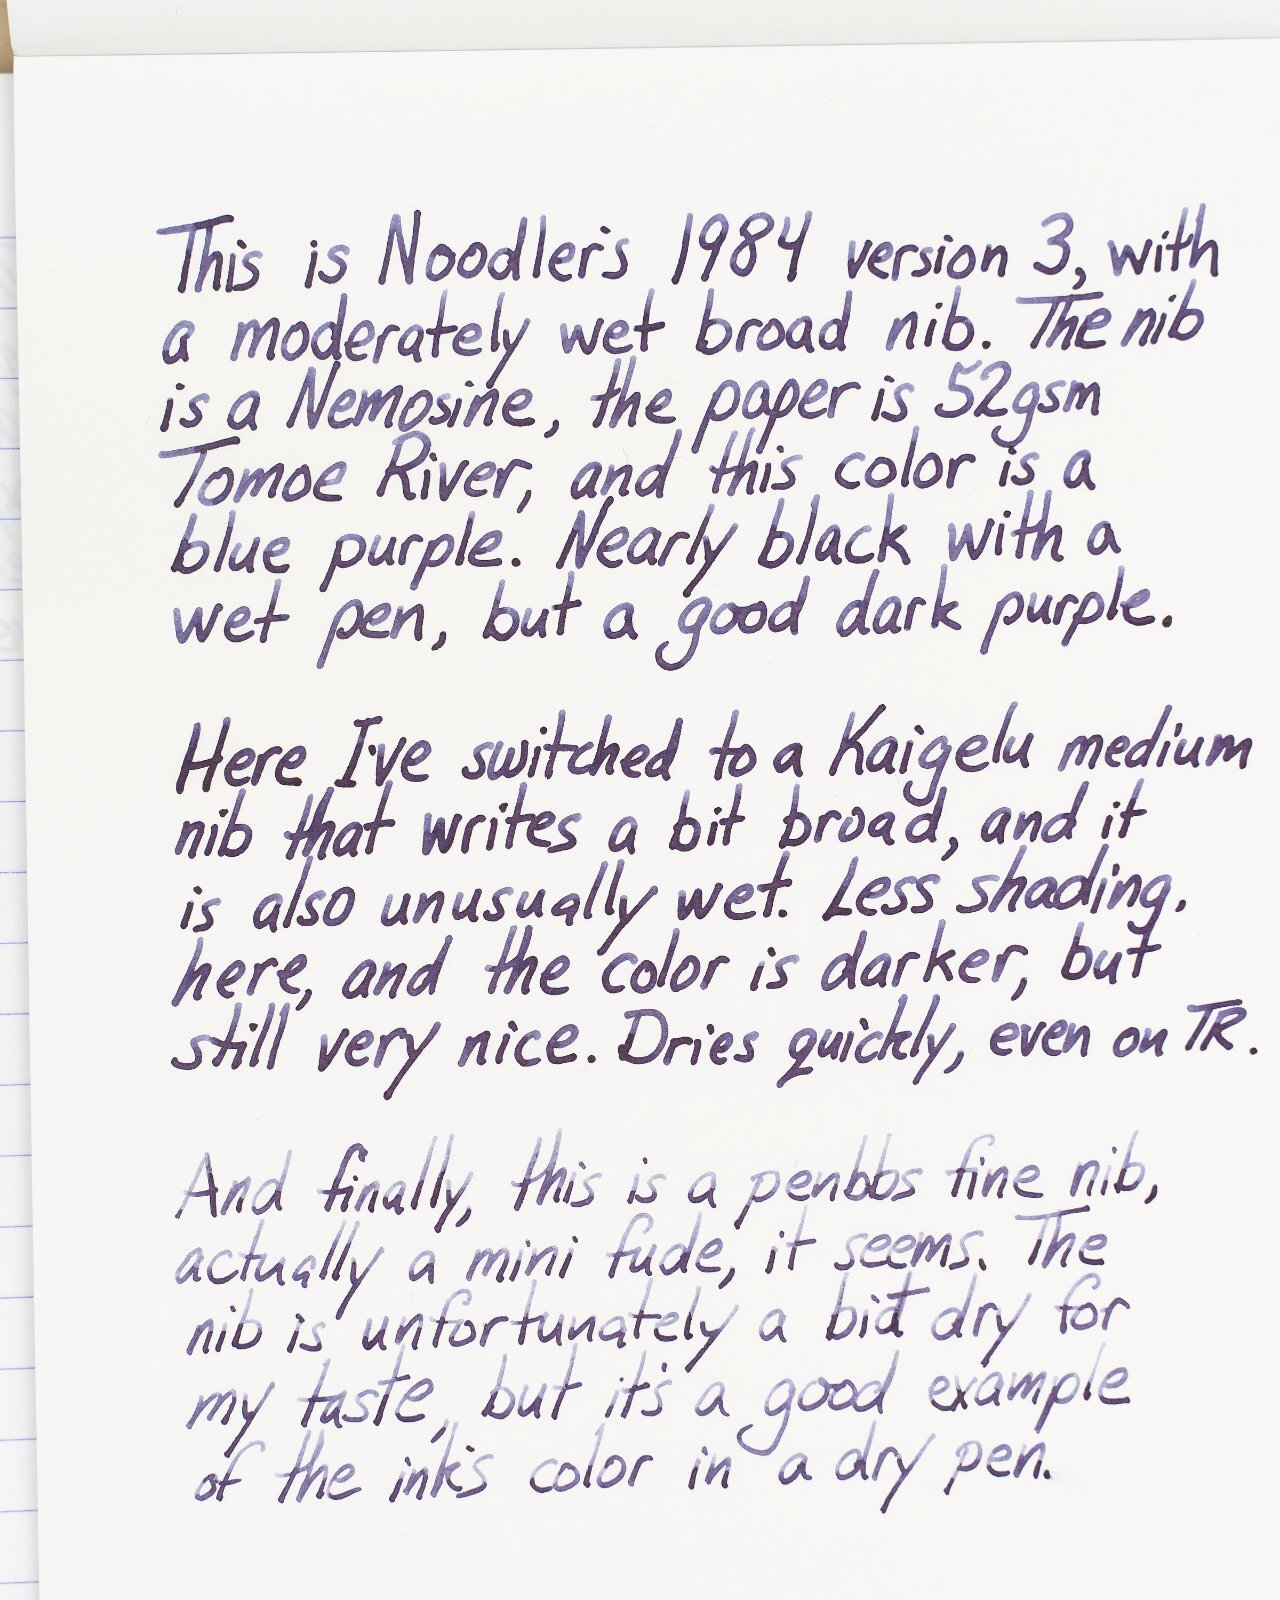 This is Noodler's 1984 version 3, with
a moderately wet broad nib. The nib
is a Nemosine, the paper is 52gsm
Tomoe River, and this color is a
blue purple. Nearly black with a
wet pen, but a good dark purple.
Here I've switched to a Kaigelu medium
nib that writes a bit broad, and it
is also unusually wet. Less shading,
here, and the color is darker, but
still very nice. Dries quickly, even on TR.
And finally, this is a penbbs fine nib,
actually a mini fude, it seems. The
nib is unfortunately a bit dry for
my taste, but it's a good example
of the ink's color in a dry pen.